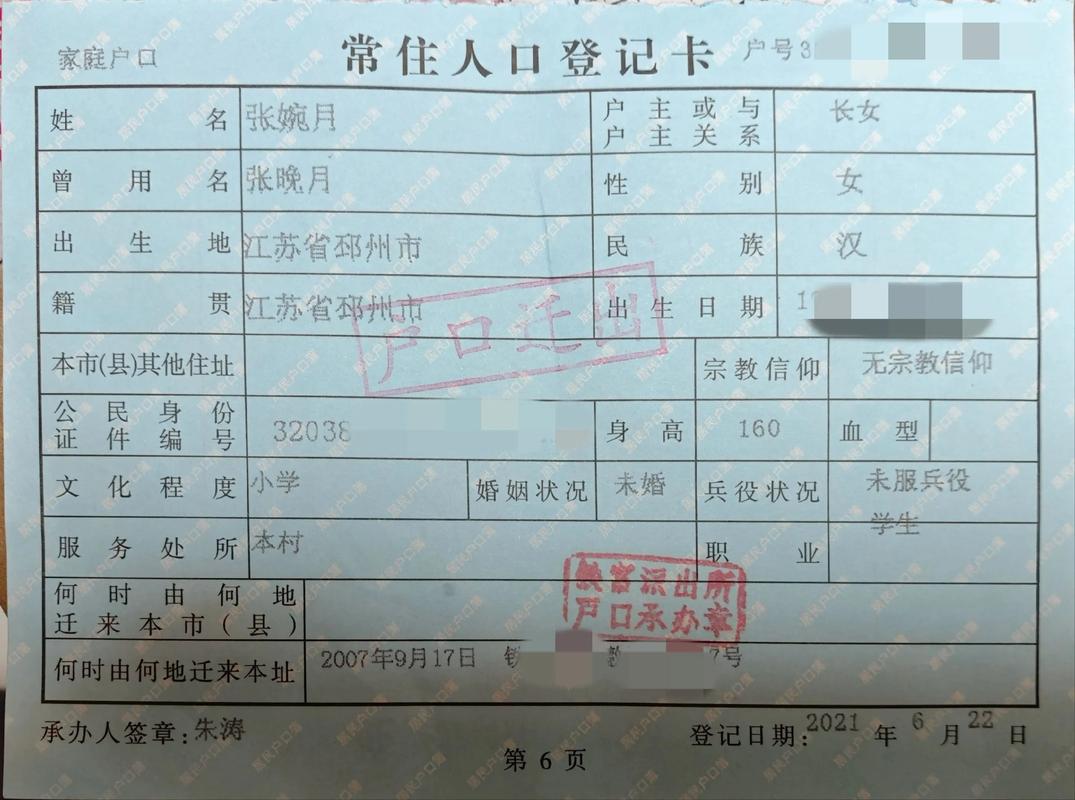 家庭户口 常住人口登记卡 户号3
姓名 张婉月 户主或与户主关系 长女
曾用名 张晚月 性别 女
出生地 江苏省邳州市 民族 汉
籍贯 江苏省邳州市 出生日期 1
户口迁出
本市(县)其他住址 宗教信仰 无宗教信仰
公民身份证件编号 32038 身高 160 血型
文化程度 小学 婚姻状况 未婚 兵役状况 未服兵役
服务处所 本村 职业 学生
铁富派出所
户口承办章
何时由何地迁来本市(县)
何时由何地迁来本址 2007年9月17日 7号
承办人签章:朱涛 登记日期:2021年6月22日
第6页
居民户口簿